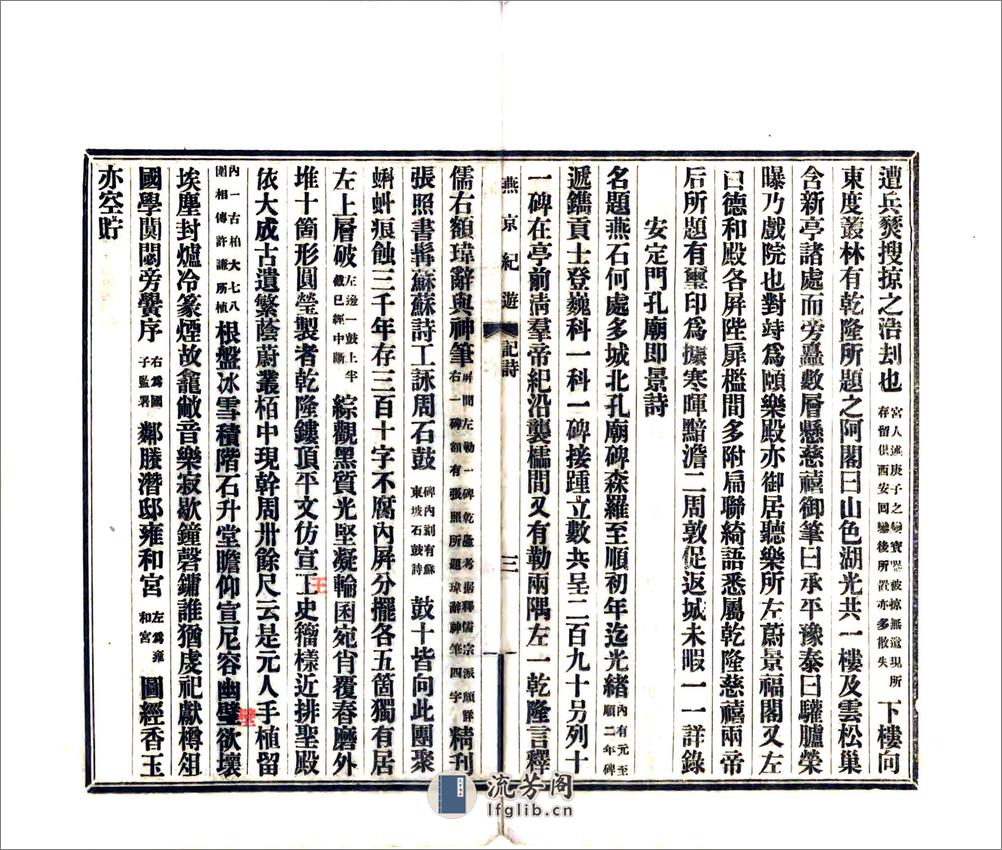 遭兵燹搜掠之浩刦也宮人述庚子之變寶器被掠無遺現所存留供西安回鑾後所置亦多散失下樓向
東度叢林有乾隆所題之阿閣曰山色湖光共一樓及雲松巢
含新亭諸處而旁矗數層懸慈禧御筆曰承平豫泰曰驩臚榮
曝乃戲院也對峙為頤樂殿亦御居聽樂所左蔚景福閣又左
曰德和殿各屏陛扉檻間多附扁聯綺語悉屬乾隆慈禧兩帝
后所題有璽印為據寒暉黯澹二周敦促返城未暇一一詳錄
安定門孔廟即景詩
名題燕石何處多城北孔廟碑森羅至順初年迄光緒內有元至順二年碑
遞鐫貢士登巍科一科一碑接踵立數共呈二百九十另列十
一碑在亭前清羣帝紀沿襲櫺間又有勒兩隅左一乾隆言釋
燕京紀遊 記詩 三
儒右額瑋辭與神筆屏間左勒一碑乾隆考据釋儒宗派頗詳右一碑額有張照所題瑋辭神筆四字精刊
張照書髯蘇蘇詩工詠周石鼓碑內刻有蘇東坡石鼓詩鼓十皆向此團聚
蝌蚪痕蝕三千年存三百十字不腐內屏分擺各五箇獨有居
左上層破左邊一鼓上半截已經中斷綜觀黑質光堅凝輪囷宛肖覆舂磨外
堆十箇形圓瑩製者乾隆鏤頂平文仿宣工史籀樣近排聖殿
王
依大成古遺繁蔭蔚叢栢中現幹周卅餘尺云是元人手植留
內一古柏大七八圍相傳許謙所植根盤冰雪積階石升堂瞻仰宣尼容幽璧欲壞
壁
埃塵封爐冷篆煙故龕敝音樂寂歇鐘磬鏞誰猶虔祀獻樽俎
國學闃閟旁黌序右為國子監署鄰塍潛邸雍和宮左為雍和宮圖經香玉
亦空貯
流芳阁
lfglib.cn